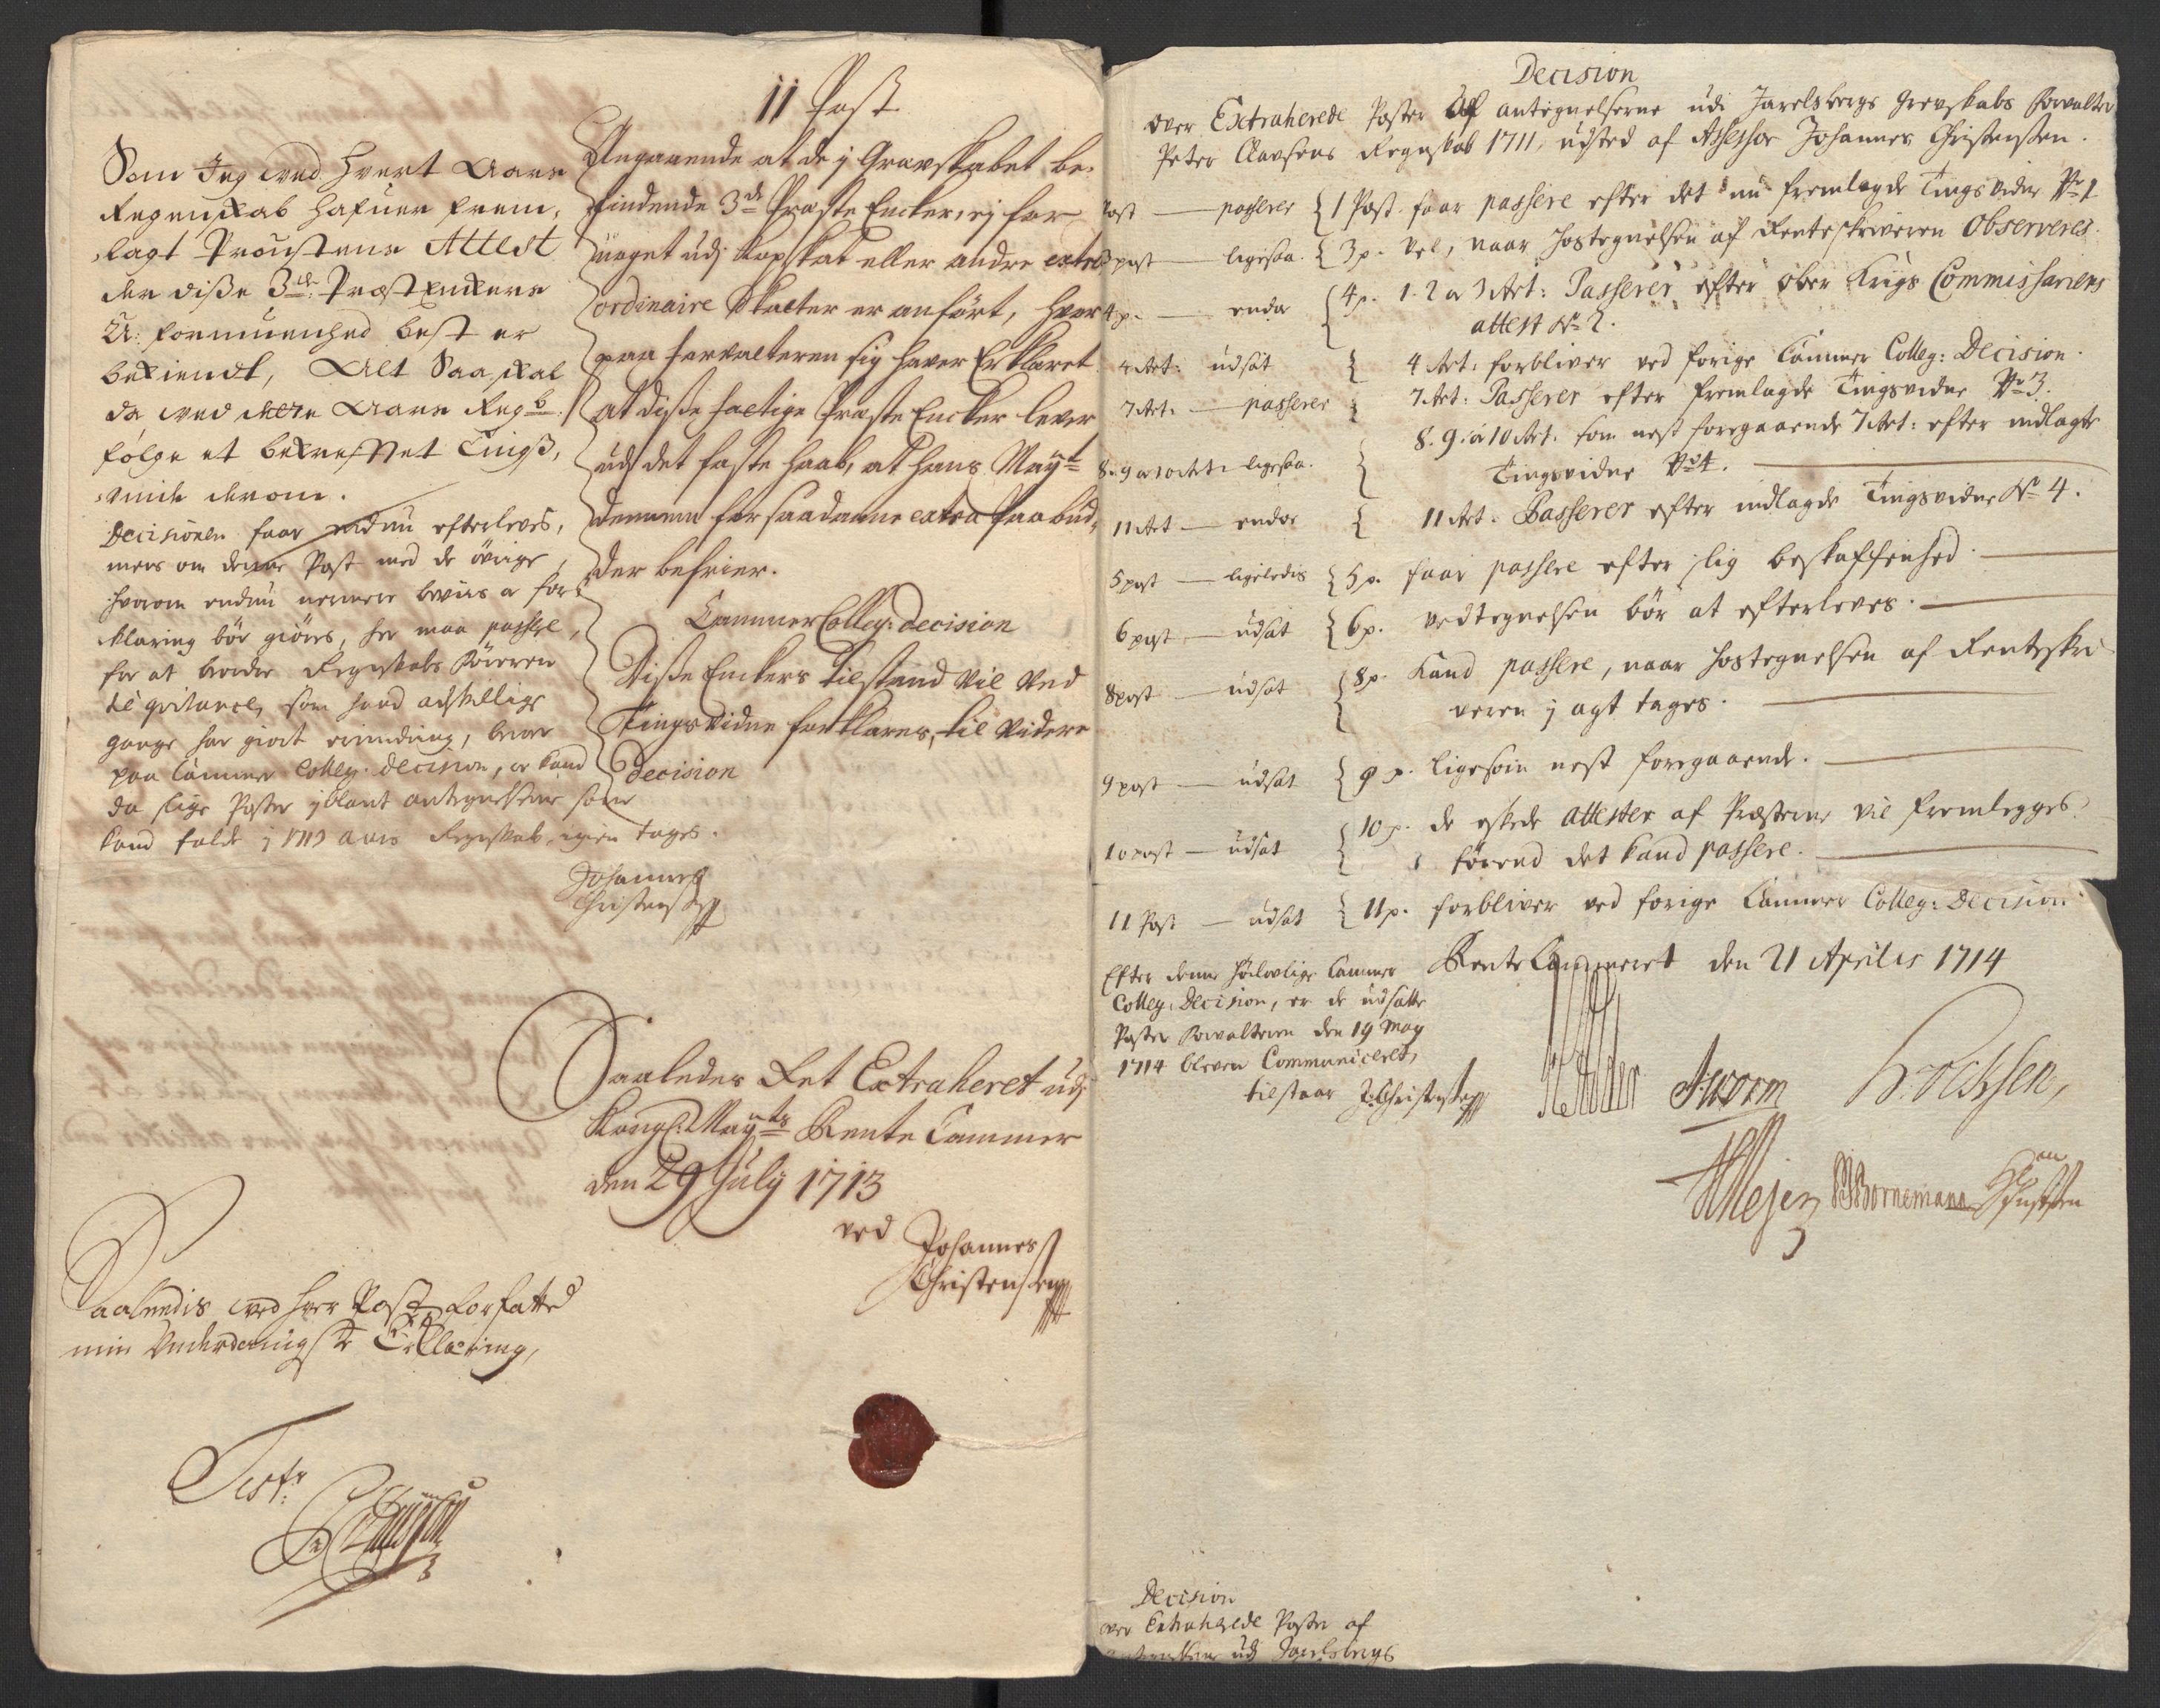 11 Post
Angaaende at de j Grevskabet be-
findende 3de Præste Encker, ej for
noget udj Kopskat eller andre extra
ordinaire Skatter er anført, hvor
paa forvalteren sig haver Erklæret
at disse fattige Præste Encker lever
udj det faste haab, at hans Mayt
dennem for saadanne extra Paabud,
der befrier.
CammerColleg: decision
Disse Enckers tilstand vil ved
Tingsvidne forklares, til videre
decision
Som Jeg ved hvert Aars
Regenskab hafuer frem,
lagt Proustens Attest
der disse 3de Præst Enckers
U: formuenhed best er
bekiendt, Alt Saa skal
da ved dette Aars Regb.
følge et bekreftet Tings,
vinde derom.
Decisionen faar endnu efterleves,
mens om denne Post med de øvrige,
hvorom endnu nermere beviis a for-
klaring bør giøres, her maa passere,
for at hindre Regnskabs Føreren
til qvitance, som hand adskillige
gange har giort erindring, beror
paa Cammer Colleg. decision, er kand
da slige Poster jblant antegnelserne som
kand falde j 1713 aars Regnskab, igien tages.
Johannes
Christensen
Saaledes Ret Extraheret udj
Kongl: Mayts Rente Cammer
den 29 July 1713
ved Johannes
Christensen
Saaledis ved hver Post forfatted
min Underdanigste Erklæring,
Test:
Decision
over Extraherede Poster Af antegnelserne udi Jarelsbergs Grevskabs Forvalter
Peter Clausens Regnskab 1711, udsted af Assessor Johannes Christensen.
Post — passerer { 1 Post faar passere efter det nu fremlagde Tingsvidne No 1
3 post — ligesaa. { 3 p. Vel, naar hostegnelsen af Renteskriveren Observeres.
4 p. — endor { 4 p. 1. 2 a 3 Art: Passerer efter ober Krigs Commissariens
attest No 2.
4 Art: udsat { 4 Art: forbliver ved forige Cammer Colleg: Decision.
7 Art: — passerer { 7 Art: Passerer efter fremlagde Tingsvidne No 3.
8. 9 a 10 Art: ligesaa. { 8. 9. a 10 Art. som nest foregaaende 7 Art: efter indlagte
Tingsvidne No 4.
11 Art — endor { 11 Art: Passerer efter indlagde Tingsvidne No 4.
5 post — ligeledis { 5 p. faar passere efter slig beskaffenhed.
6 post — udsat { 6 p. vedtegnelsen bør at efterleves.
8 post — udsat { 8 p. Kand passere, naar hostegnelsen af Renteskri
veren j agt tages.
9 post — udsat { 9 p. ligesom nest foregaaende.
10 post — udsat { 10 p. de eskede attester af Præsterne vil fremlegges
førend det kand passere.
11 Post — udsat { 11 p. forbliver ved forige Cammer Colleg: Decision
RenteCammeret den 21 Aprilis 1714
Efter denne høilovlige Cammer
Colleg: Decision, er de udsatte
Poster Forvalteren den 19 May
1714 bleven Communiceret,
tilstaar J. Christensen
J: Worm
Meyer Bornemann
Decision
over Extraherede Poster af
antegnelserne udj Jarlsbergs